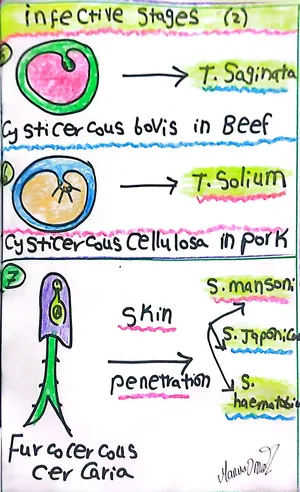 infective Stages (2)
T. Saginata
Cysticercous bovis in Beef
T. Solium
Cysticercous Cellulosa in pork
7
S. mansoni
Skin
S. Japonica
penetration
S.
haematobi
Furcocercous
Cercaria